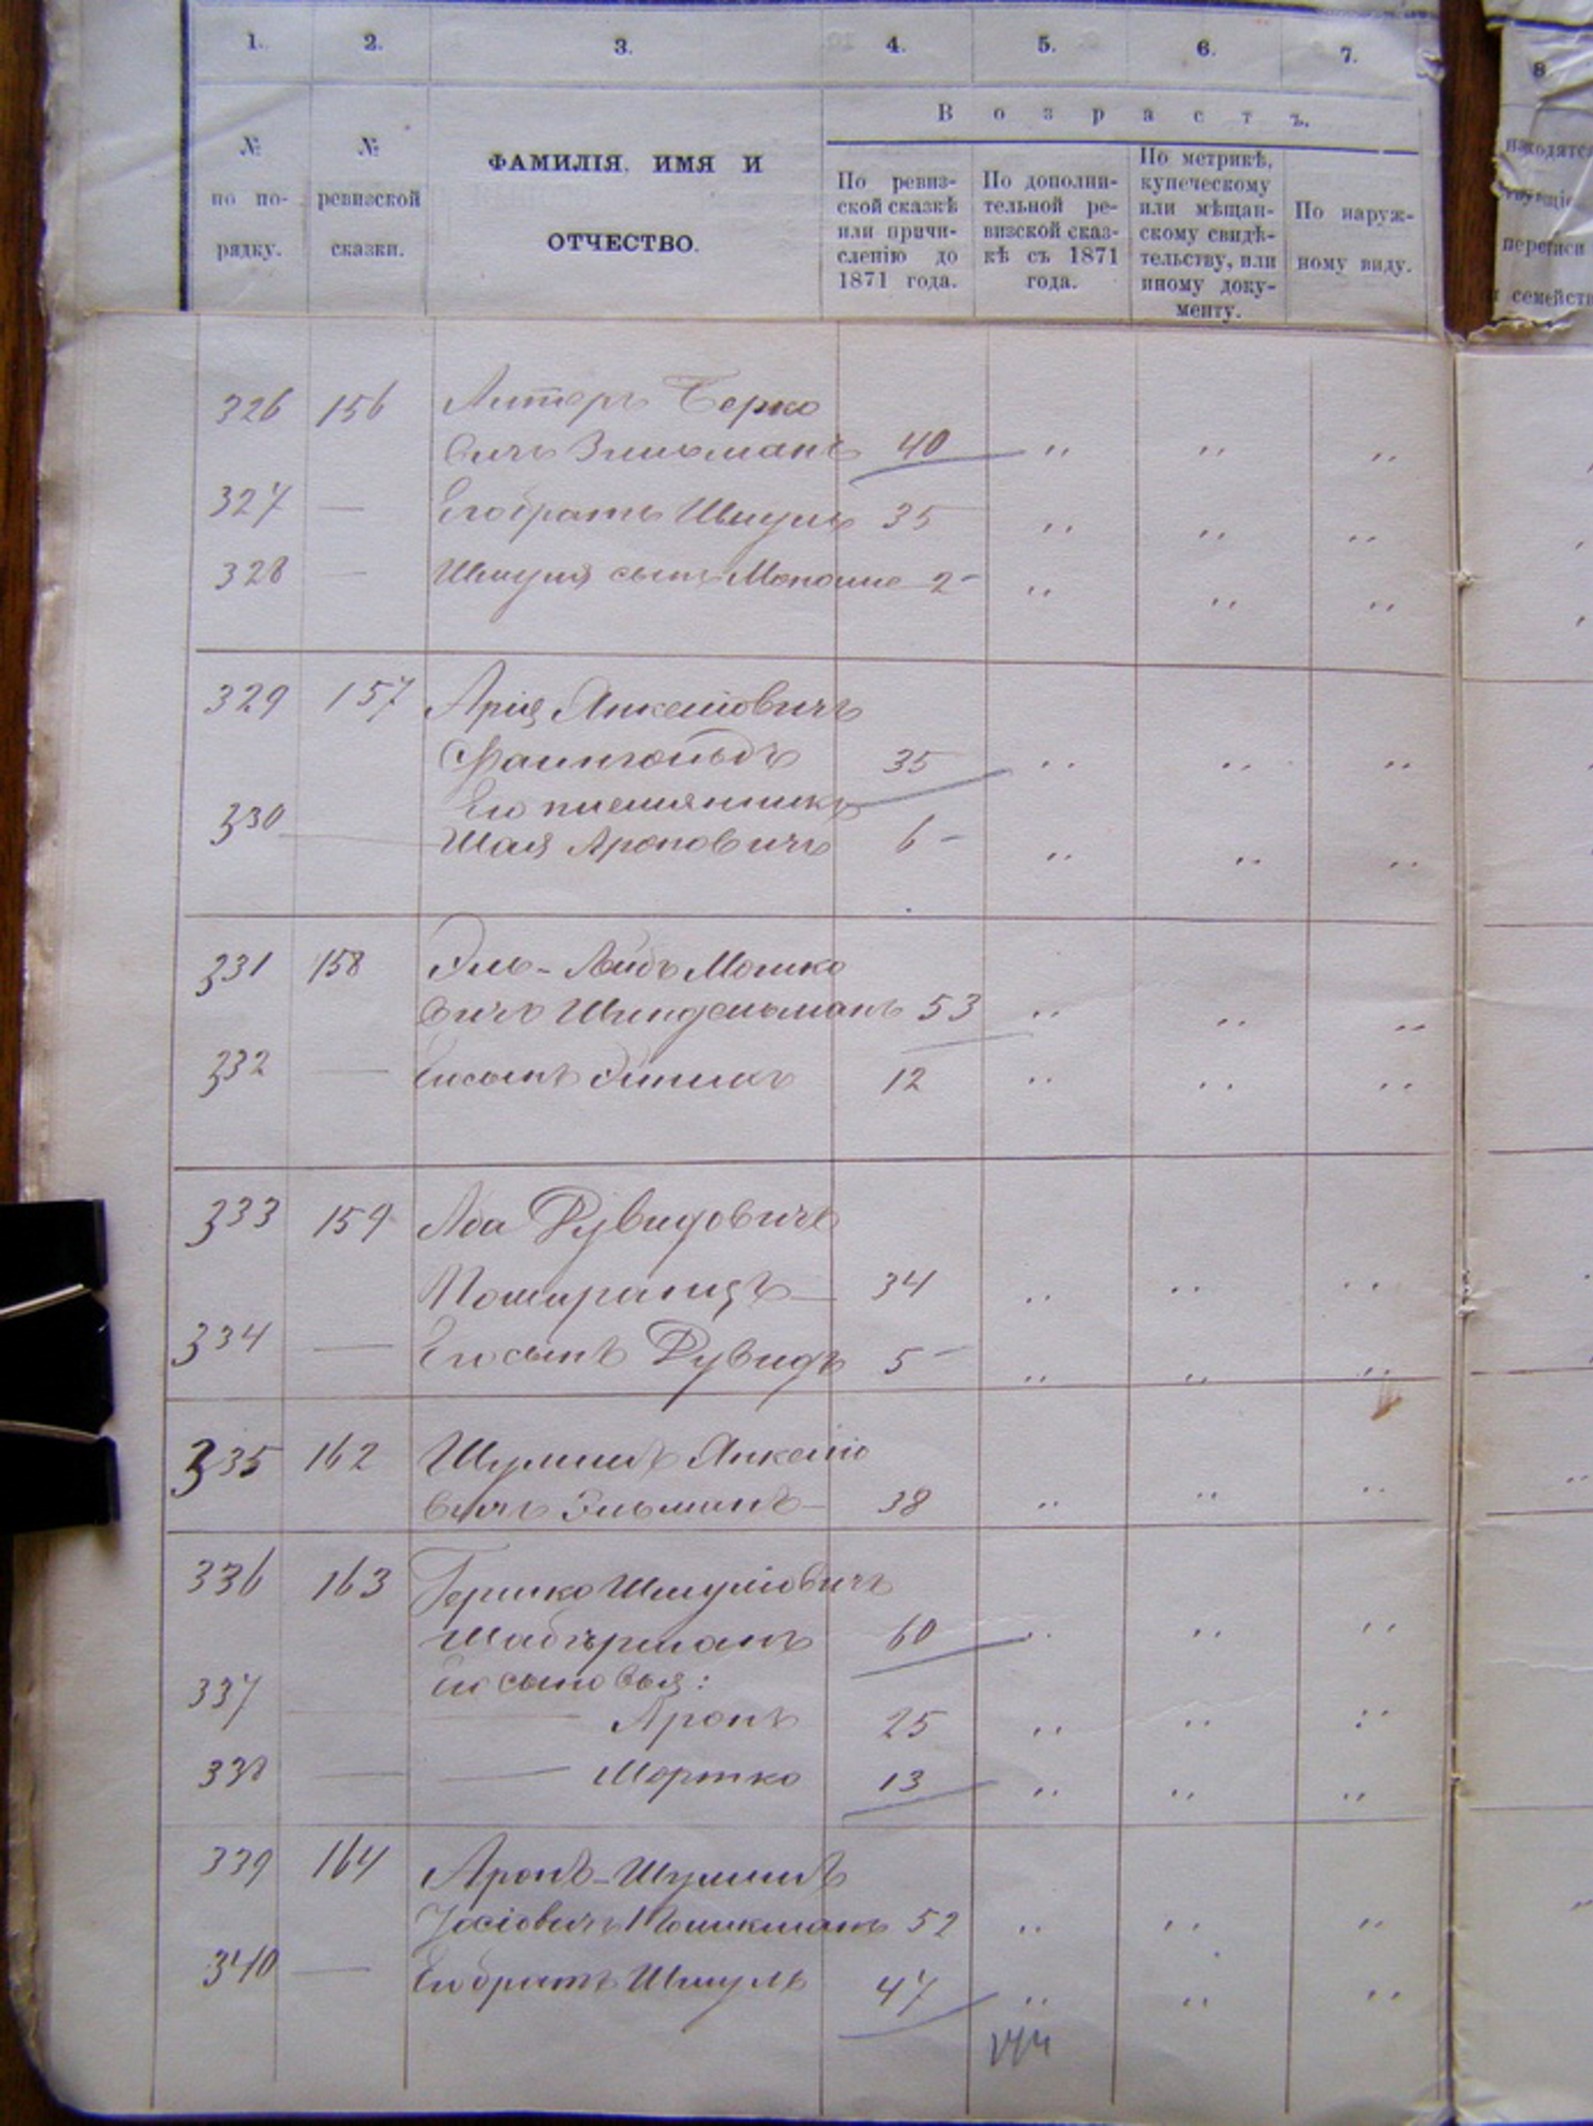 1. 2. 3. 4. 5. 6. 7. 8
В о з р а с т ъ.
№ по по-рядку.
№ ревизской сказки.
ФАМИЛІЯ, ИМЯ И
ОТЧЕСТВО.
По ревиз-
ской сказкѣ
или причи-
сленію до
1871 года.
По дополни-
тельной ре-
визской сказ-
кѣ съ 1871
года.
По метрикѣ,
купеческому
или мѣщан-
скому свидѣ-
тельству, или
иному доку-
менту.
По наруж-
ному виду.
326 156 Литеръ Берко
вичъ Зильманъ 40 " " "
327 — Его братъ Шмуль 35 " " "
328 — Шмуля сынъ Манаше 2 - " " "
329 157 Арія Янкеліовичъ
Фаингольдъ 35 " " "
Его племянникъ
330 — Шая Ароновичъ 6 - " " "
331 158 Эль-Лейбъ Мошко
вичъ Шпидельманъ 53 " " "
332 — Его сынъ 12 " " "
333 159 Аба Рувидовичъ
Помиранцъ — 34 " " "
334 — Его сынъ Рувидъ 5 - " " "
335 162 Шулимъ Янкеліо
вичъ Эльманъ — 38 " " "
336 163 Гершко Шмуліовичъ
60 " " "
337 Его сыновья:
— Аронъ 25 " " "
338 — — Мортко 13 " " "
339 164 Аронъ-Шулимъ
Іосіовичъ 52 " " "
340 — Его братъ Шмуль 47 " " "